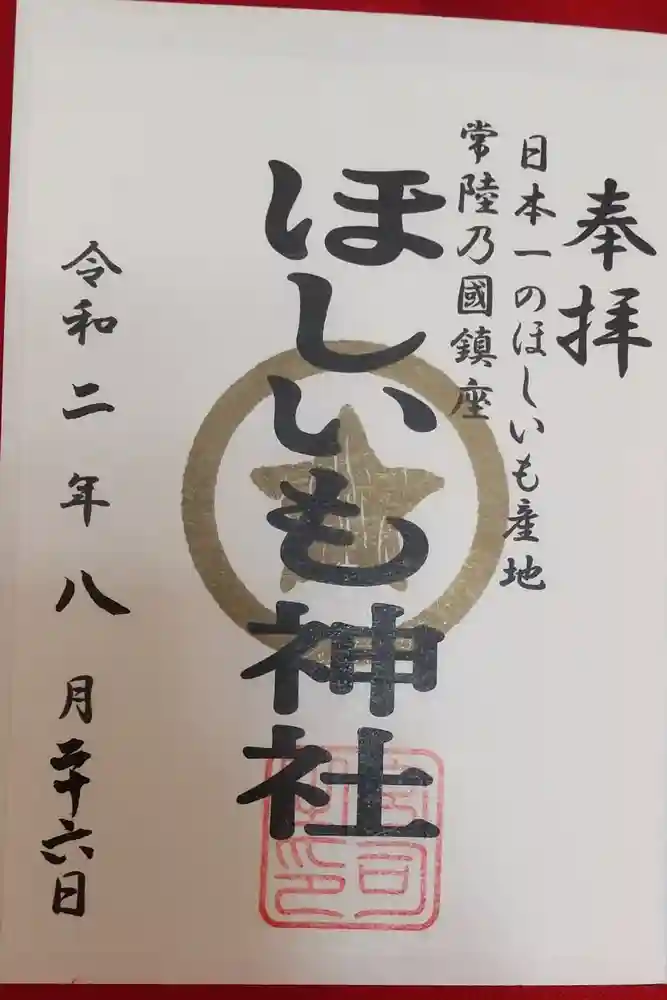 奉拝
日本一のほしいも産地
常陸乃國鎮座
ほしいも神社
令和二年八月二十六日